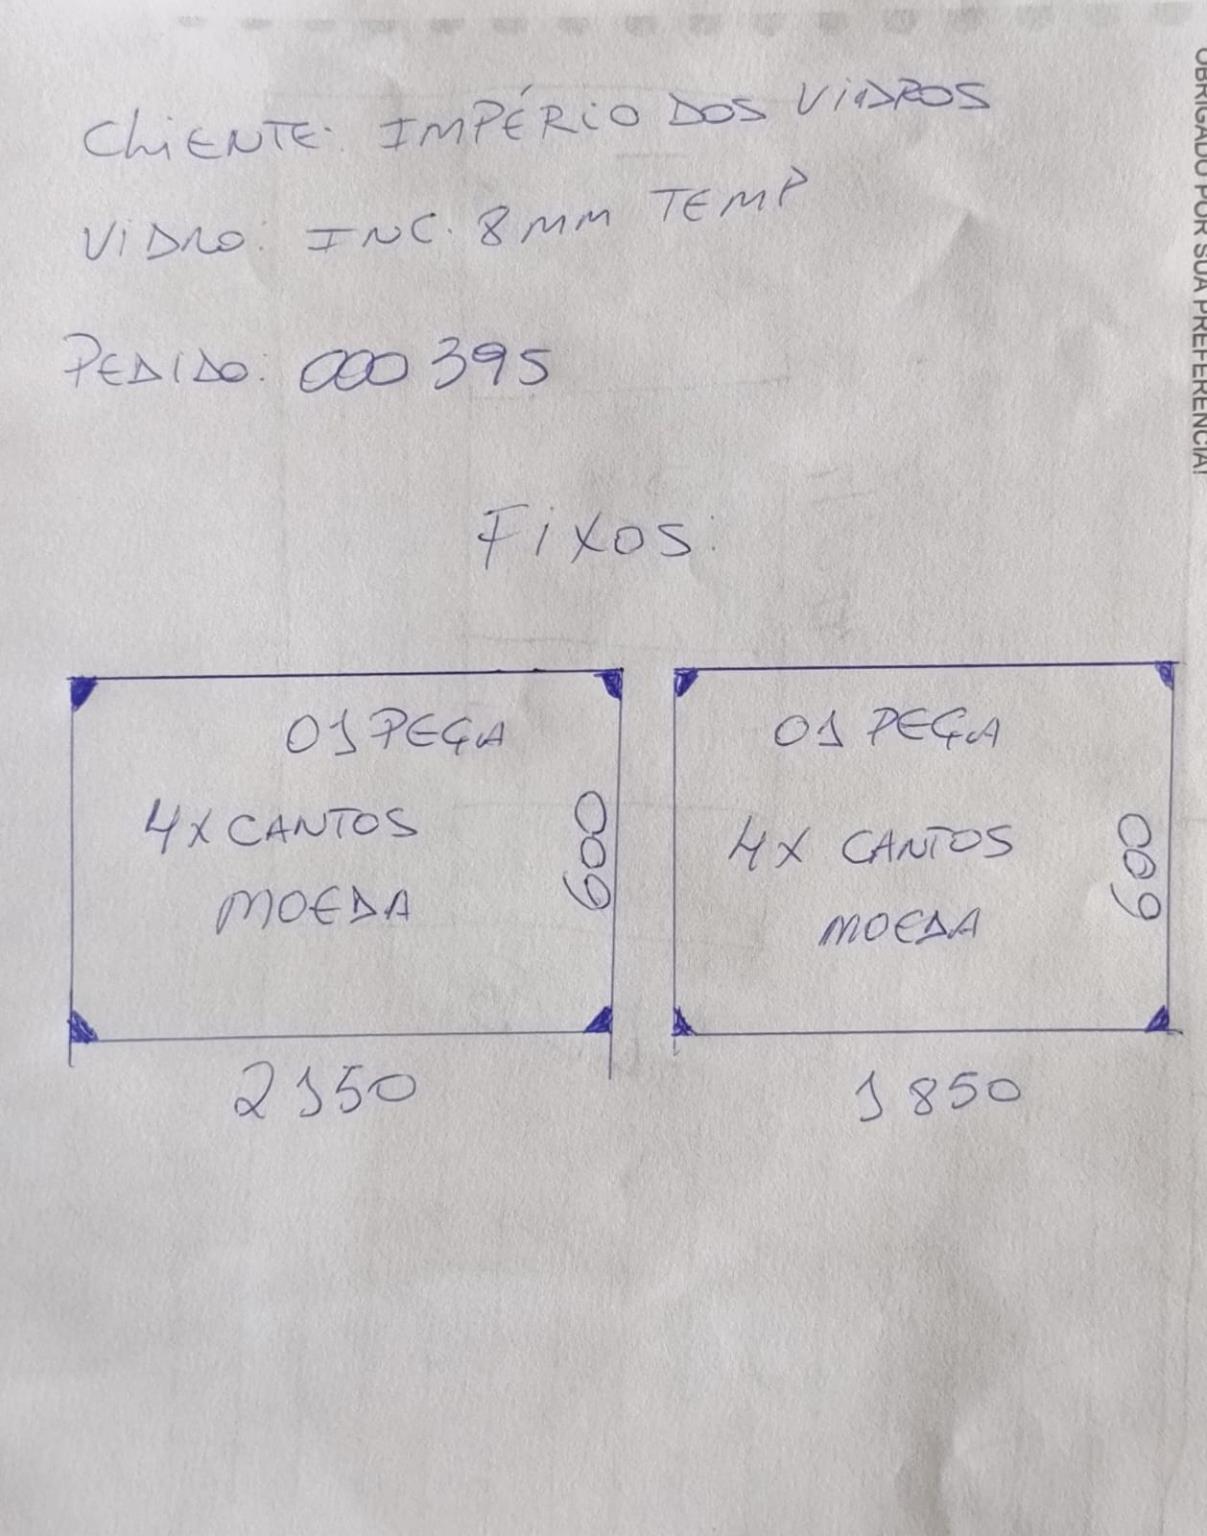 CLIENTE: IMPÉRIO DOS VIDROS
VIDRO: INC. 8MM TEMP
PEDIDO: 000395
FIXOS:
01 PEÇA
4X CANTOS
MOEDA
600
2150
01 PEÇA
4X CANTOS
MOEDA
600
1850
OBRIGADO POR SUA PREFERENCIA!